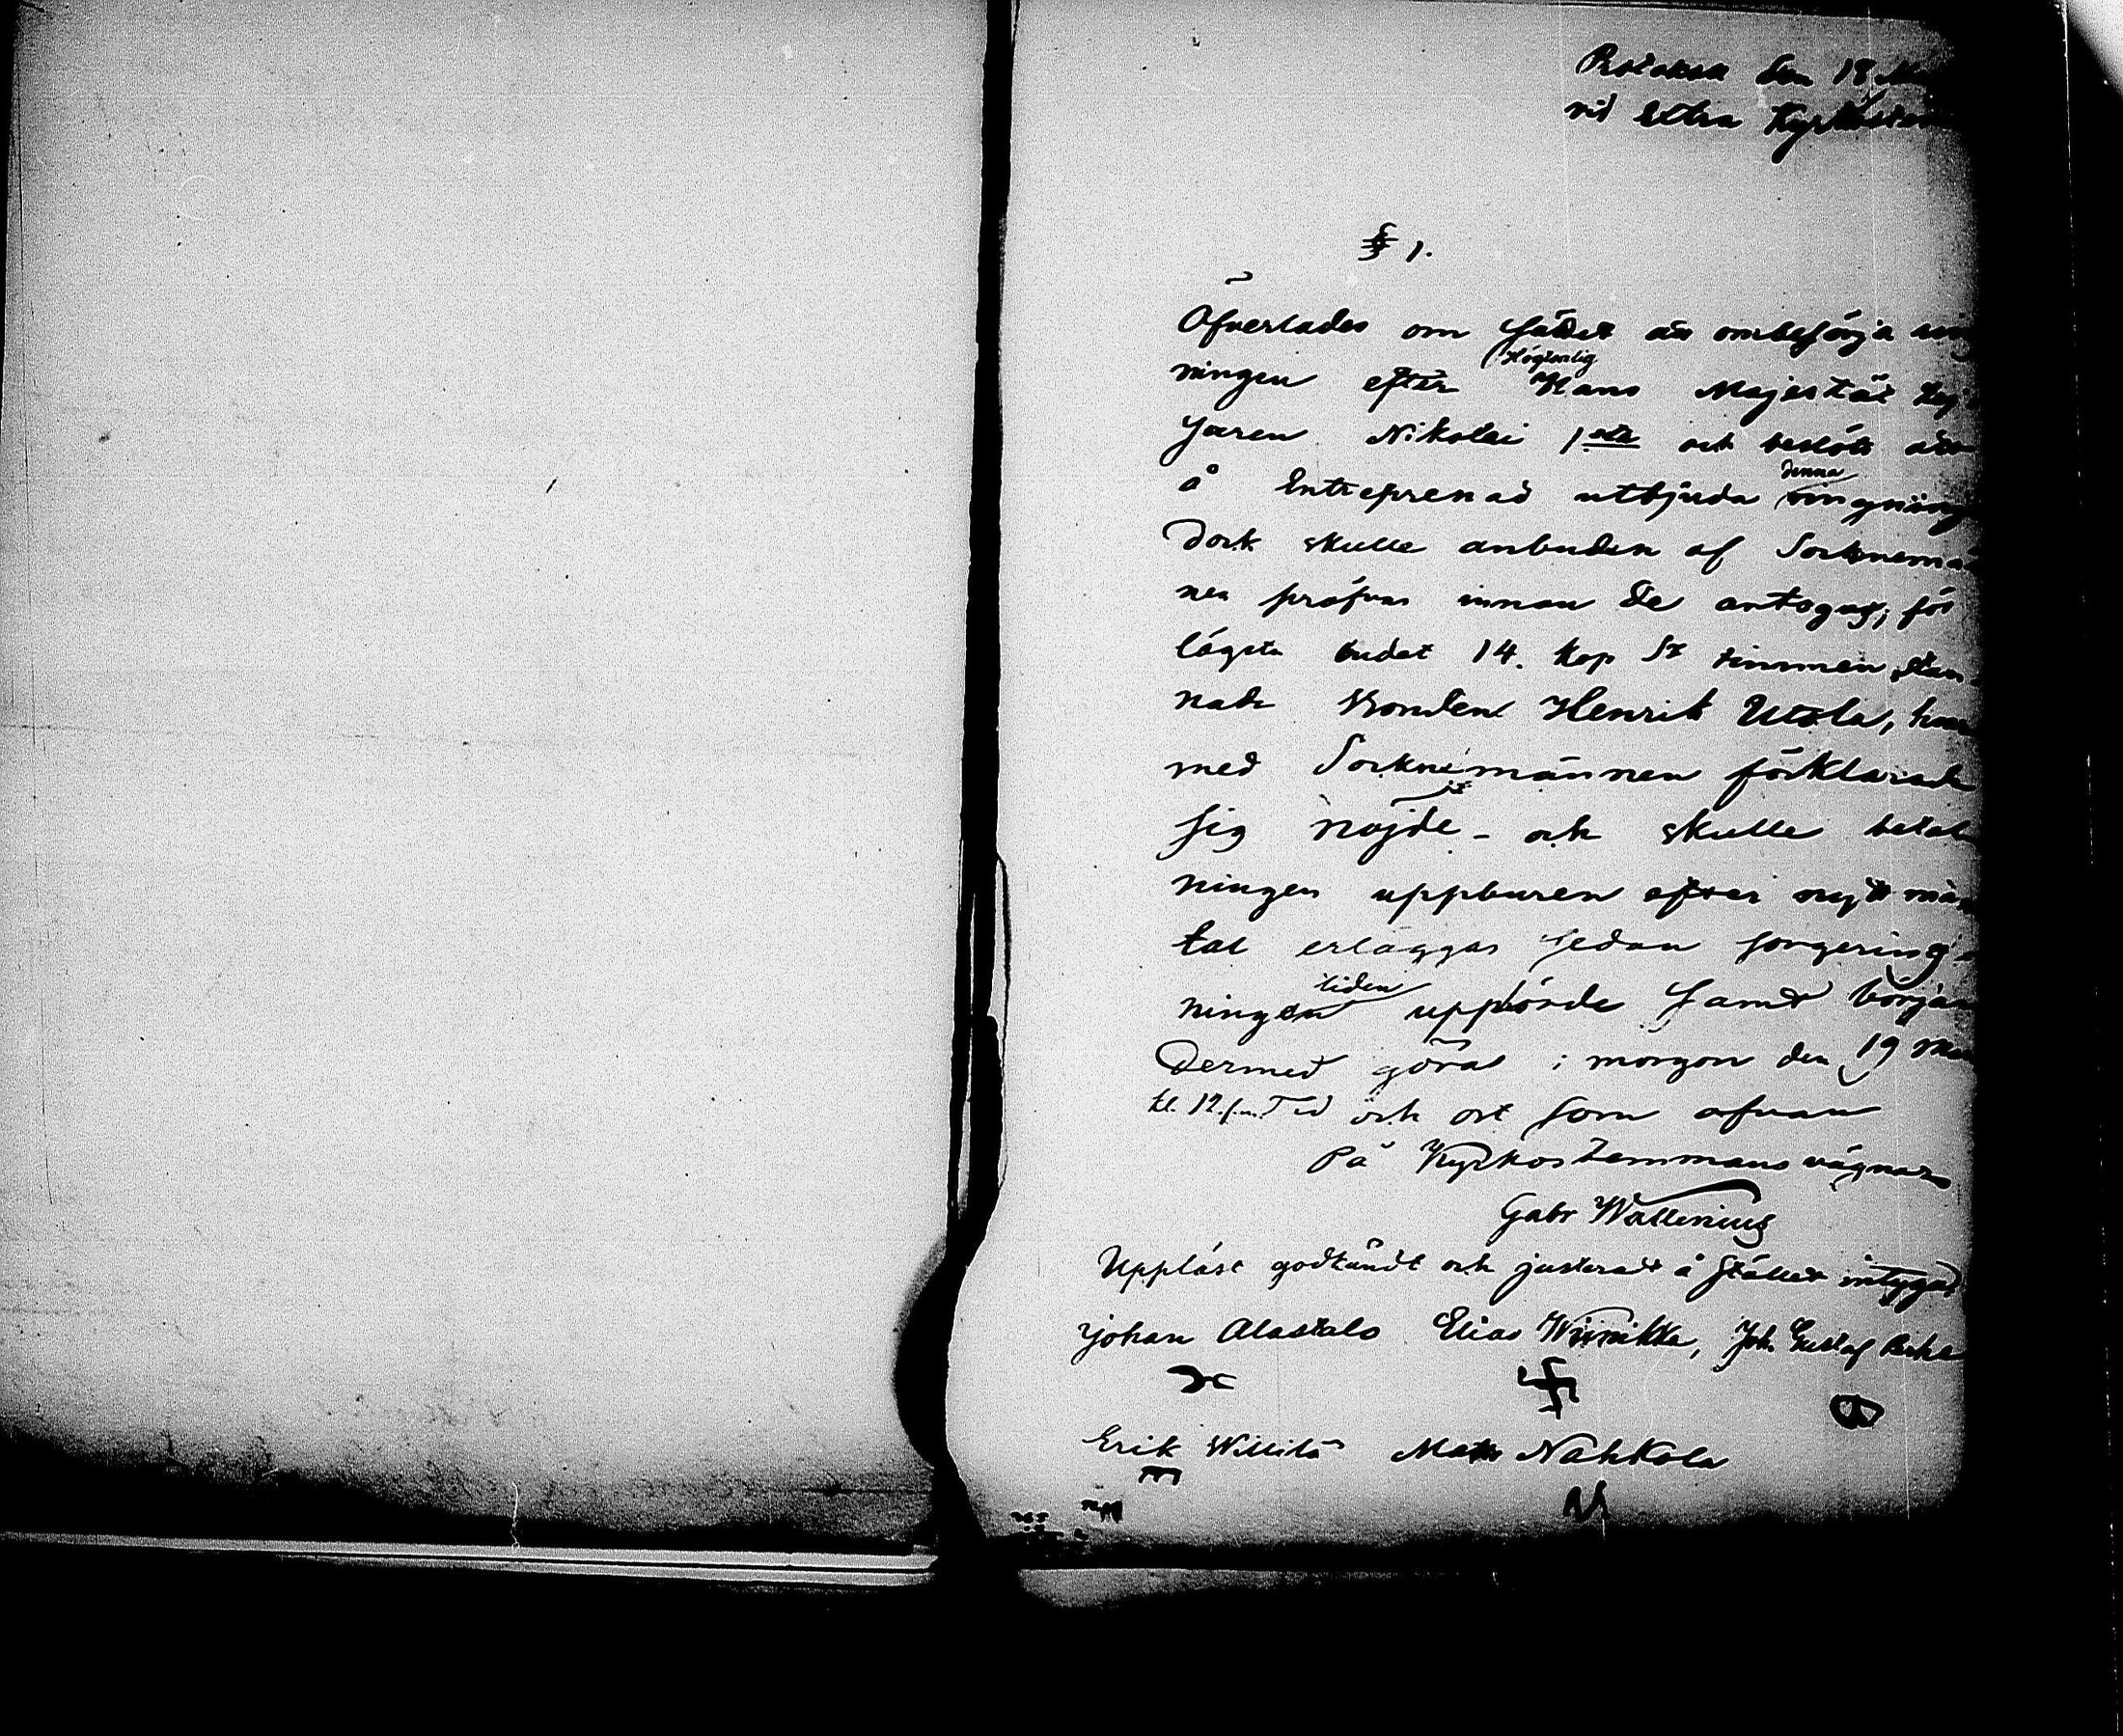 Protokoll den 18 Ma
vid Extra Kyrkostäm
§ 1.
Öfverlades om sättet att ombesörja ring
ningen efter Högtsalig Hans Majestät Kej
saren Nikolai 1sta och beslöts att
å Entreprenad utbjuda denna ringning
Dock skulle anbuden af Socknemän
nen pröfvas innan de antogos; för
lägsta budet 14. kop Sr timmen stan-
nade Bonden Henrik Utola, hvar
med Socknemännen förklarade
sig nöjde - och skulle betal
ningen uppburen efter nytt man
tal erläggas sedan sorgering
ningstiden upphörde samt början
Dermed göras i morgon den 19 Mar
kl. 12. f.m. Tid och ort som ofvan
På Kyrkostemmans vägnar
Gabr Wallenius
Uppläst godkändt och justeradt å stället intyga
Johan Alastalo Elias Wiinikka, Joh. Gustaf
Erik Willilä Matts Nahkola